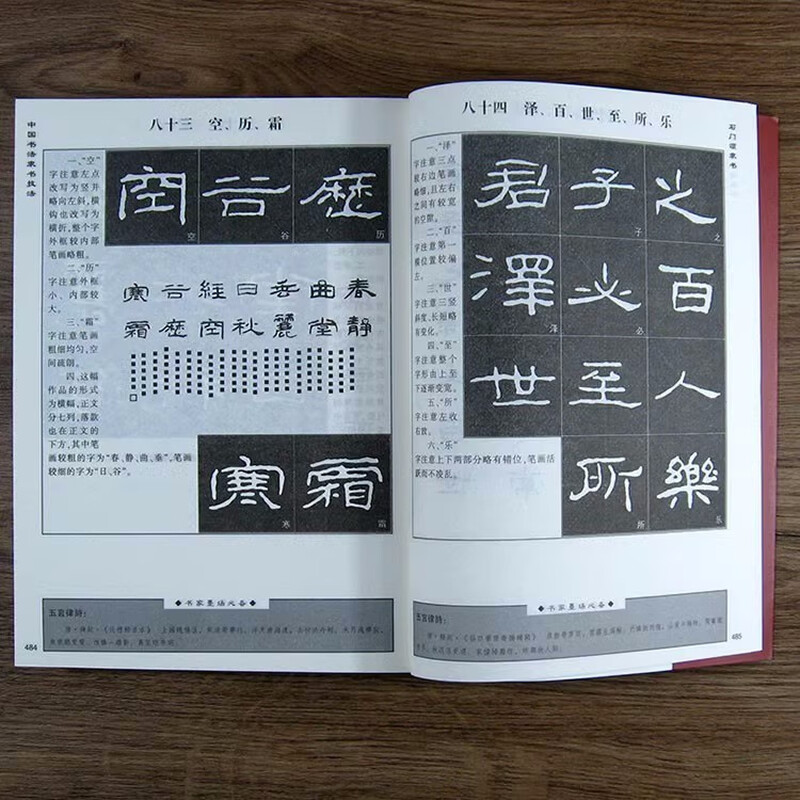 中国书法家书技法
八十三 空、历、霜
一、“空”
字注意左点
改写为竖并
略向左斜，横
钩也改写为
横折，整个字
外框较内部
笔画略粗。
二、“历”
字注意外框
小、内部较
大。
三、“霜”
字注意笔画
粗细均匀，空
间疏朗。
四、这幅
作品的形式
为横幅，正文
分七列，落款
也在正文的
下方，其中笔
画较粗的字为“春、静、曲、垂”，笔画
较细的字为“日、谷”。
歷
历
谷
谷
空
空
春静
曲堂
垂麗
日秋
經空
谷歷
寒霜
霜
霜
寒
寒
◆书家墨场必备◆
五言律詩：
484
八十四 泽、百、世、至、所、乐
石门颂隶书
一、“泽”
字注意三点
水
较右边笔画
略细，且左右
之间有较宽
的空隙。
二、“百”
字注意第一
横位置较偏
左。
三、“世”
字注意三竖
斜度、长短略
有变化。
四、“至”
字注意整个
字形由上至
下逐渐变宽。
五、“所”
字注意左收
右放。
六、“乐”
字注意上下两部分略有错位，笔画活
跃而不凌乱。
之
之
百
人
樂
乐
子
子
必
必
至
所
所
君
澤
泽
世
◆书家墨场必备◆
五言律詩：
485